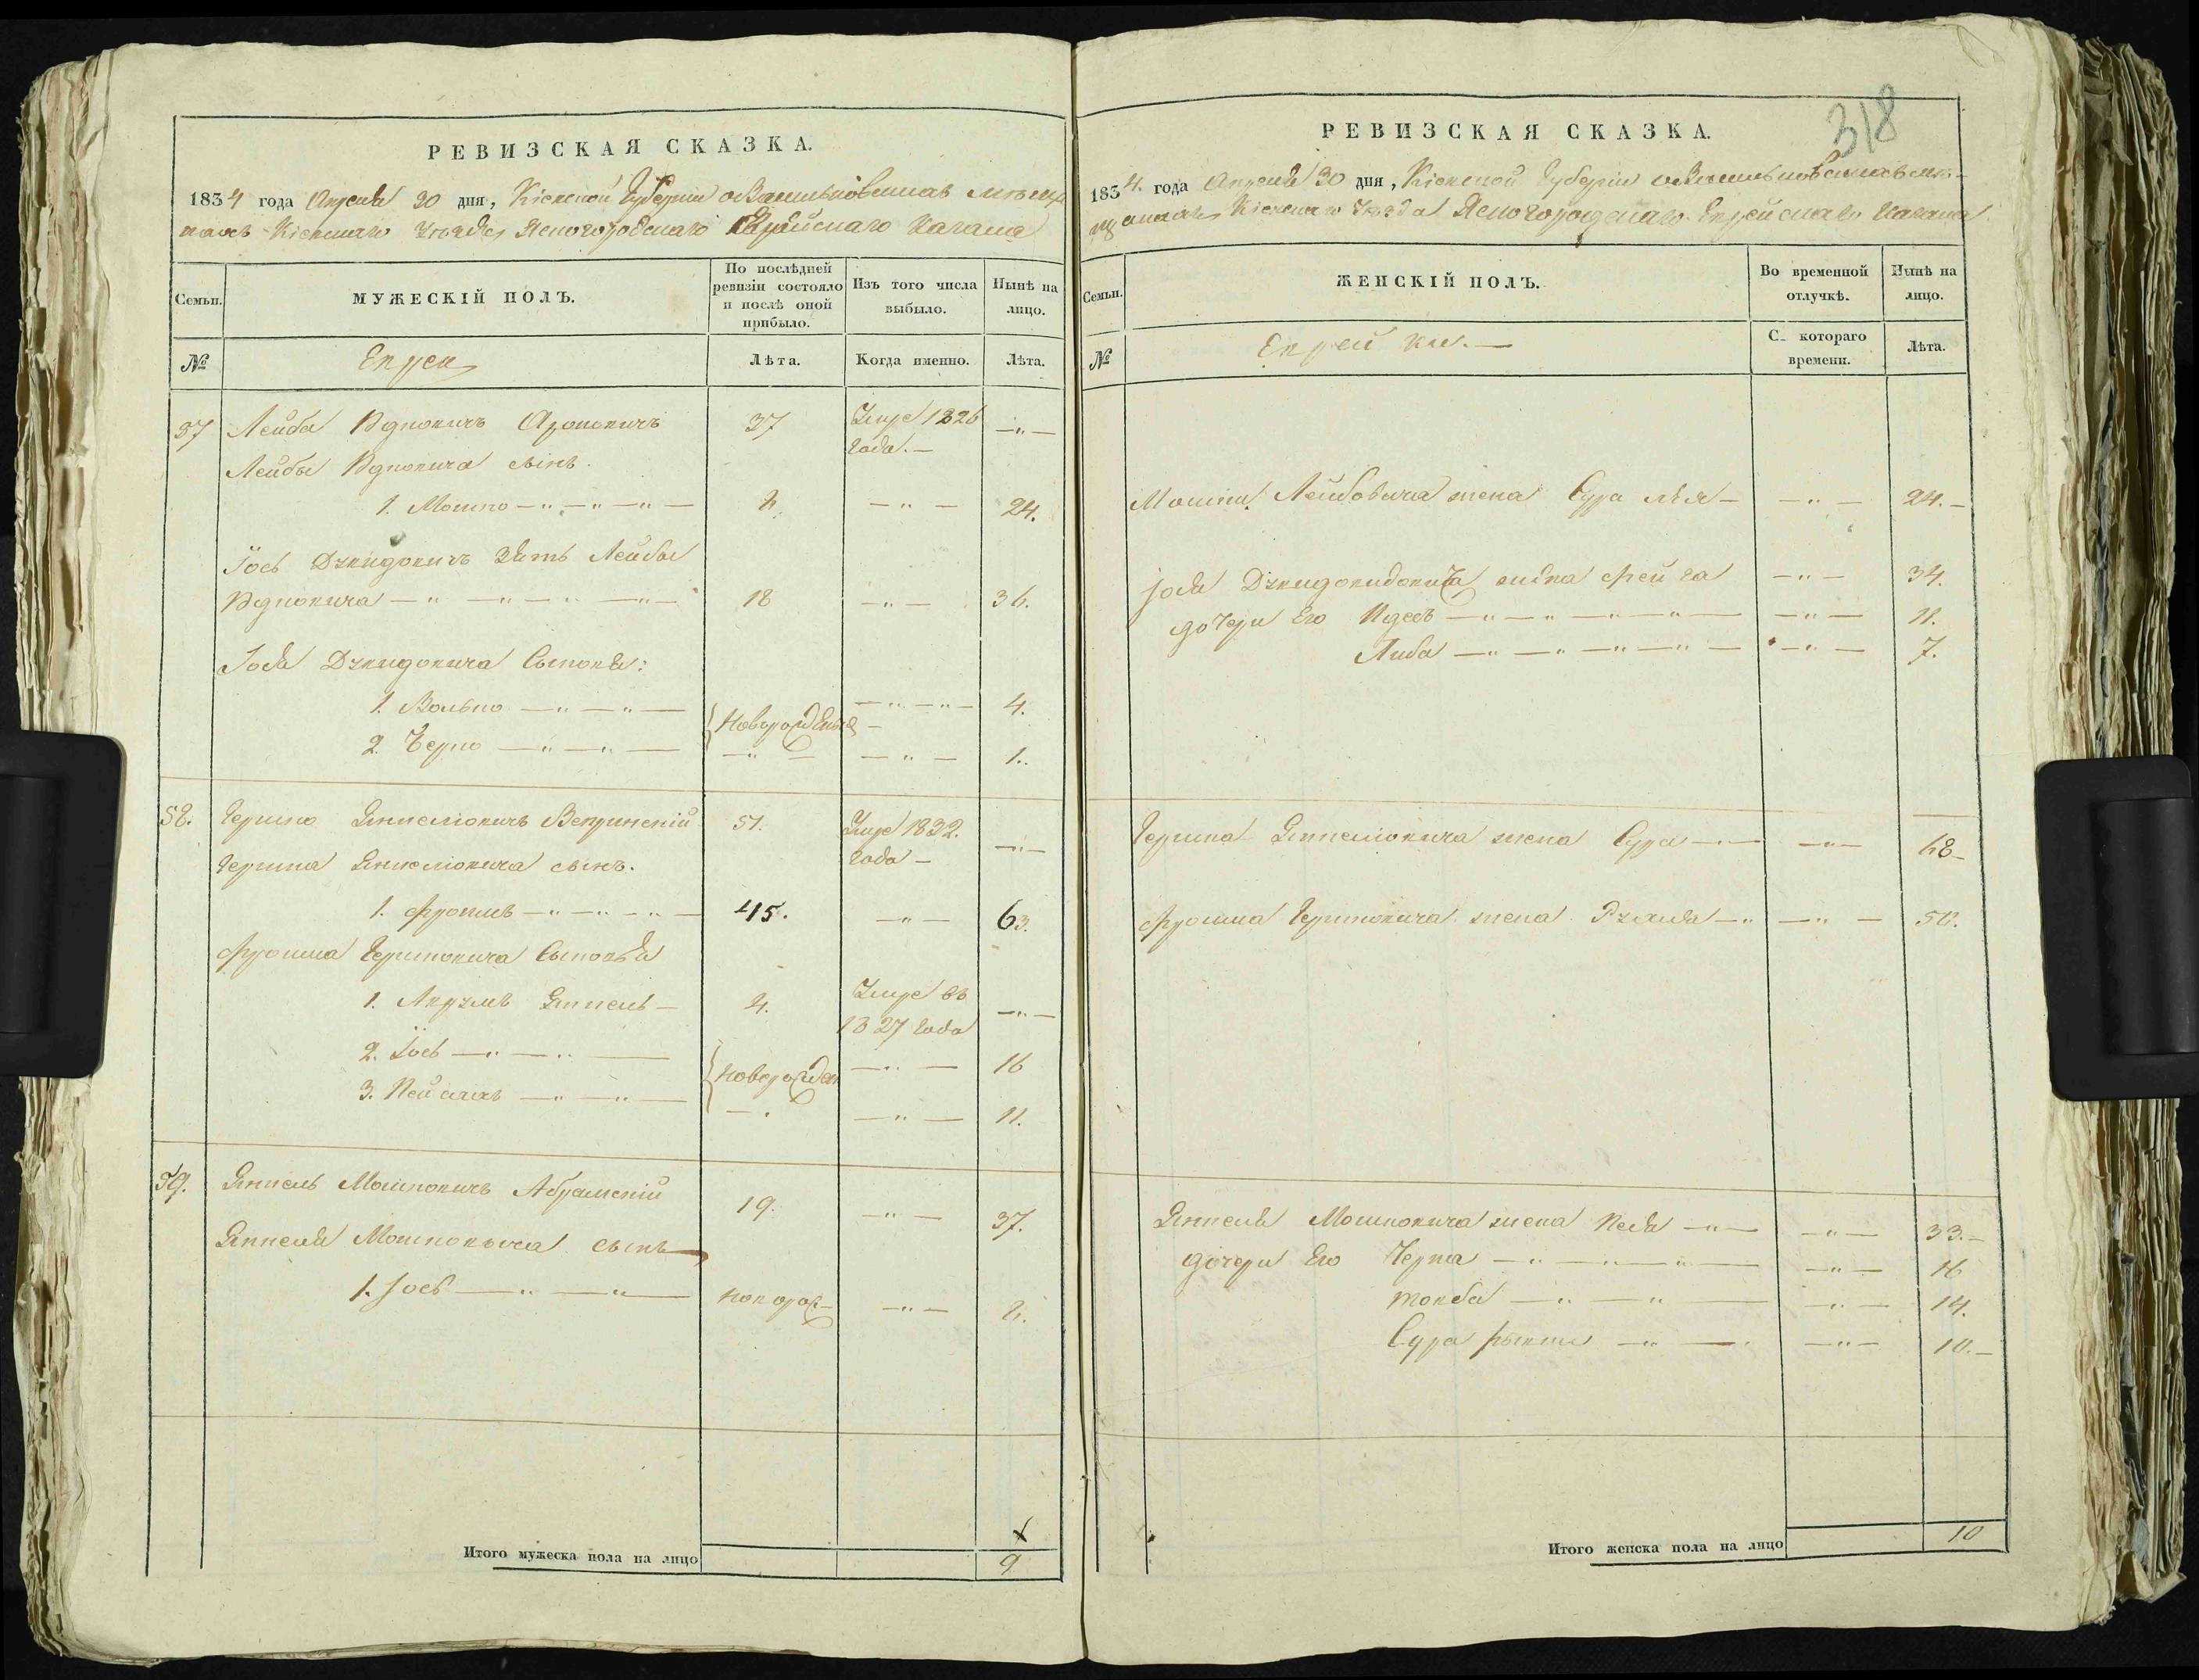 РЕВИЗСКАЯ СКАЗКА.
1834 года Апреля 30 дня, Кіевской Губерніи о Васильковскихъ мѣща
нахъ Кіевскаго Уѣзда Ясногородскаго Еврейскаго Кагала
Семьи.
МУЖЕСКІЙ ПОЛЪ.
По послѣдней ревизіи состояло и послѣ оной прибыло.
Изъ того числа выбыло.
Нынѣ на лицо.
№
Евреи
Лѣта.
Когда именно.
Лѣта.
57 Лейба Арономичъ 37 Умре 1826 года. — — " —
Лейбы сынъ.
1. Мошко — " — " — " — — " — 24.
Іось зять Лейбы
— " — " — " — " — 18 — " — 36.
Іося Сыновья:
1. Волько — " — " — Новорожденые — " — " — 4.
2. Берко — " — " — — " — — " — 1.
58. Гершко Янкеліовичъ Вепринскій 51. Умре 1832. года — — " —
Гершка Янкеліовича сынъ.
1. Фроимъ — " — " — " — 45. — " — 63.
Фроима Гершковича Сыновья
1. Аврумъ Янкель — 4. Умре въ 1827 года — " —
2. Іось — " — " — Новорожден — " — 16
3. Пейсахъ — " — " — — " — " — 11.
59. Янкель Мошковичъ Абрамскій 19. — " — 37.
Янкеля Мошковича сынъ
1. Іось — " — " —Новорож — — " — 2.
Итого мужеска пола на лицо 9
318
РЕВИЗСКАЯ СКАЗКА.
1834. года Апреля 30 дня, Кіевской Губерніи о Васильковскихъ мѣ-
щанахъ Кіевскаго Уѣзда Ясногородскаго Еврейскаго Кагала
Семьи.
ЖЕНСКІЙ ПОЛЪ.
Во временной отлучкѣ.
Нынѣ на лицо.
№
Еврейки. —
С котораго времени.
Лѣта.
Мошки Лейбовича жена Сура Лея — — " — 24. —
Іося жена Фейга — " — 34.
дочери Его — " — " — " — " — — " — 11.
Либа — " — " — " — " — — " — 7.
Гершка Янкеліовича жена Сура — — " — 68 —
Фроима Гершковича жена — " — " — 50.
Янкеля Мошковича жена Песя — " — — " — 33. —
дочери Его Черна — " — " — " — — " — 16
Товба — " — " — — " — 14.
Сура Рыкля — " — — " — 10. —
Итого женска пола на лицо 10